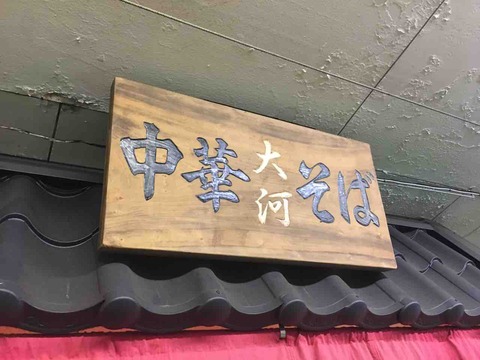 中華大河そば